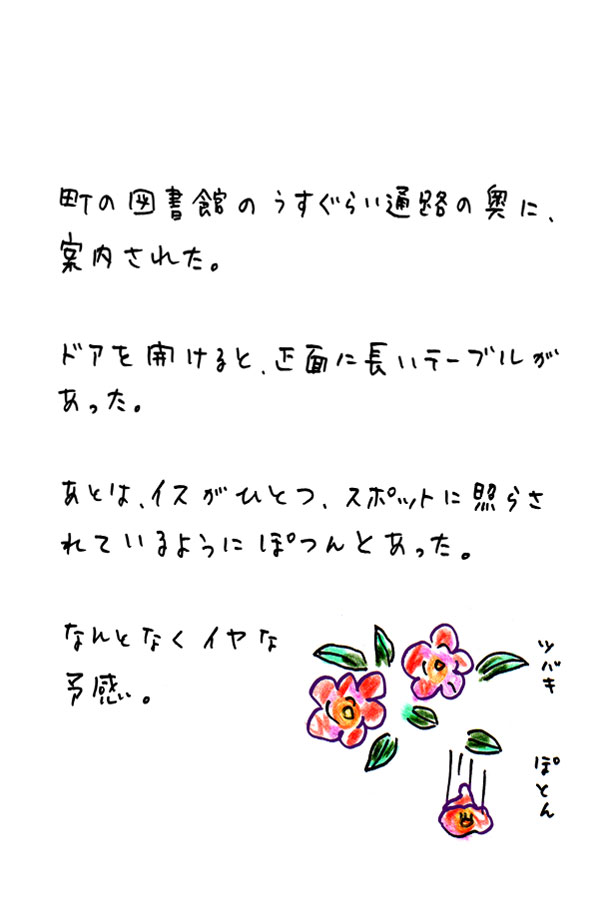 町の図書館のうすぐらい通路の奥に、
案内された。
ドアを開けると、正面に長いテーブルが
あった。
あとは、イスがひとつ、スポットに照らさ
れているようにぽつんとあった。
なんとなくイヤな
予感。
ツバキ
ぽとん